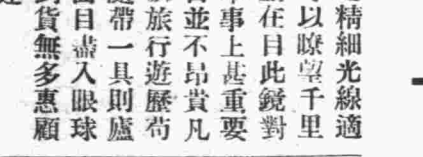 精細光線適
以瞭望千里
在目此鏡對
事上甚重要
並不昂貴凡
旅行遊歷苟
帶一具則廬
目盡入眼球
貨無多惠顧